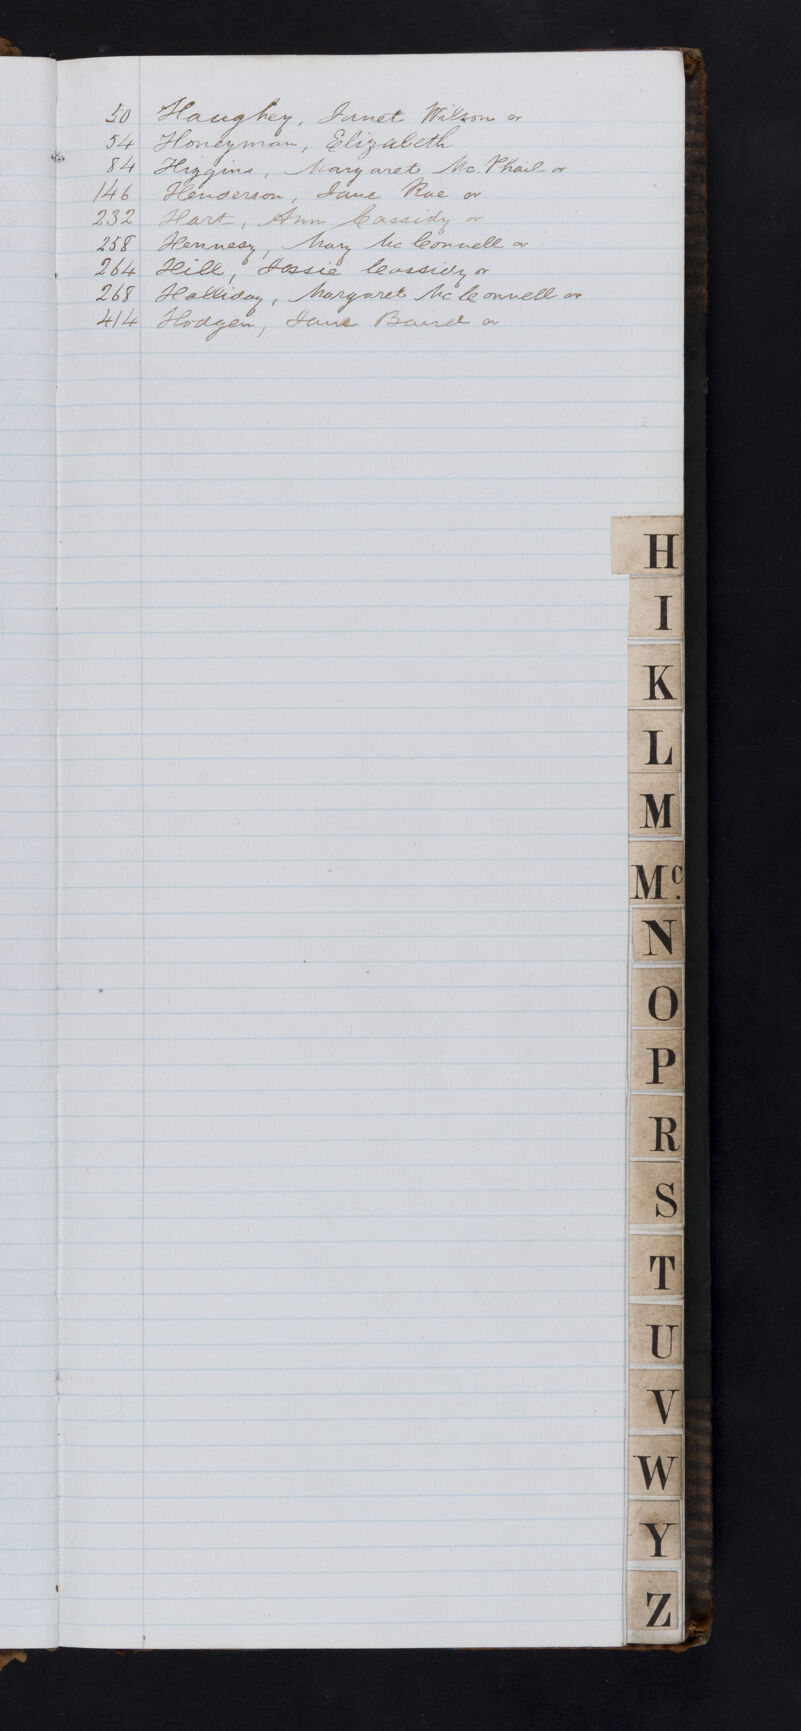 50 Haughey, Janet Wilson or
54 Honeyman, Elizabeth
84 Higgins, Margaret Mc. Phail or
146 Henderson, Jane Rae or
232 Hart, Ann Cassidy or
258 Hennesy, Mary McConnell or
264 Hill, Jessie Cassidy or
268 Halliday, Margaret McConnell or
414 Hodgen, Jane Baird or
H
I
K
L
M
Mc.
N
O
P
R
S
T
U
V
W
Y
Z